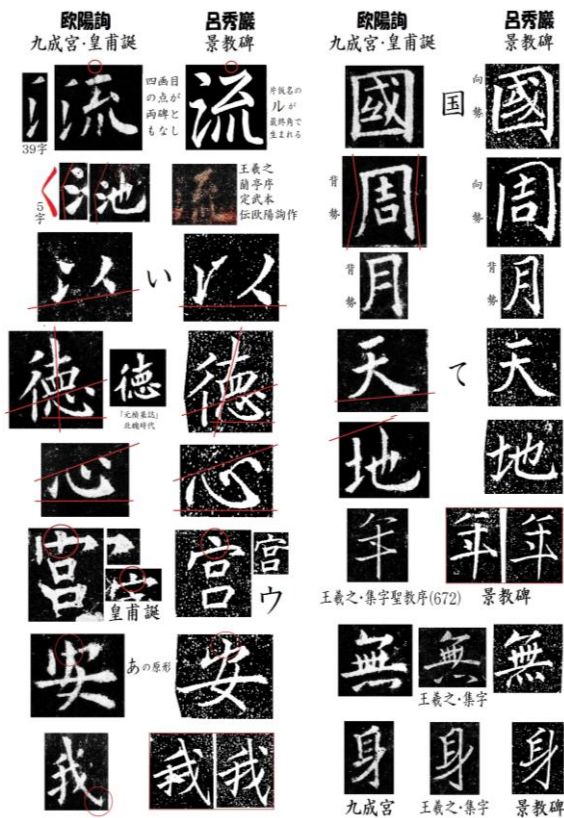 歐陽詢
九成宮・皇甫誕
呂秀巖
景教碑
流
39字
四画目
の点が
両碑と
もなし
流
片仮名の
ルが
最終角で
生まれる
く
5字
池
流
王羲之
蘭亭序
定武本
伝欧陽詢作
以
い
以
徳
徳
「元楨墓誌」
北魏時代
徳
心
心
宮
皇甫誕
宮
宮
ウ
安
あの原形
安
我
我
我
歐陽詢
九成宮・皇甫誕
呂秀巖
景教碑
國
国
向勢
國
背勢
周
向勢
周
背勢
月
背勢
月
天
て
天
地
地
年
年
年
王羲之・集字聖教序(672)
景教碑
無
無
無
王羲之・集字
身
身
身
九成宮
王羲之・集字
景教碑